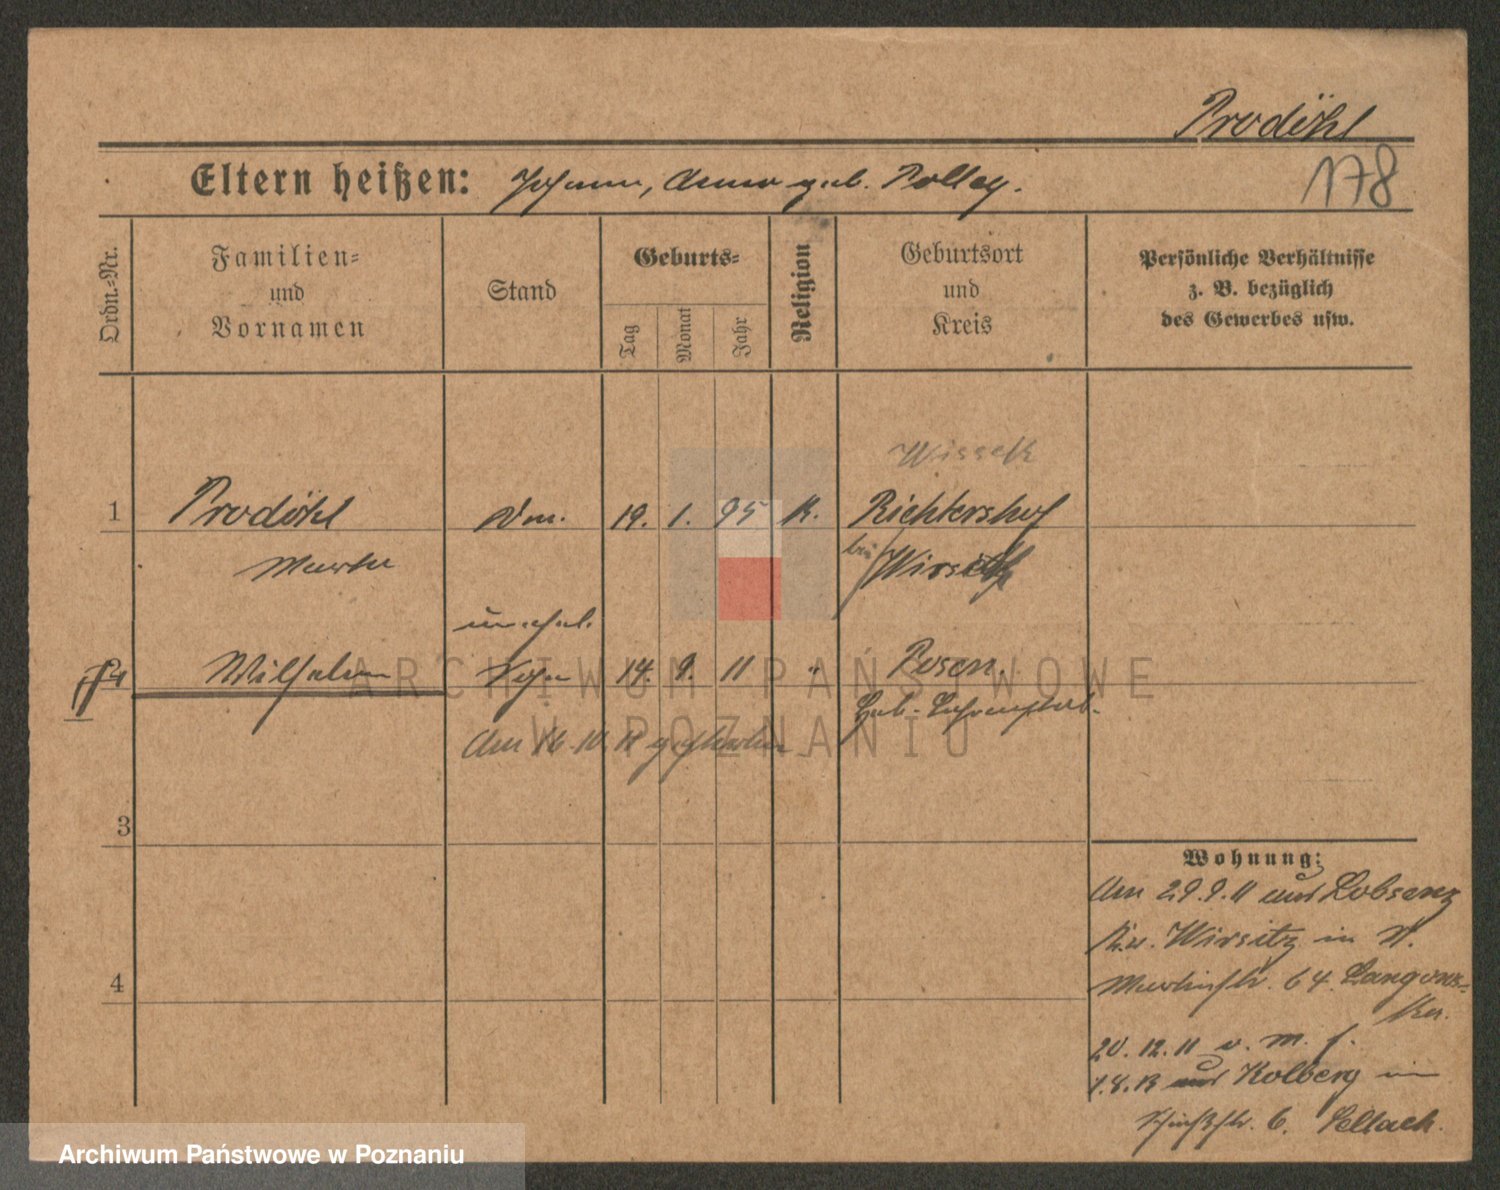 Prodöhl
178
Eltern heißen: Johann, Anna geb. Polley.
Ordn.=Nr.
Familien=
und
Vornamen
Stand
Geburts=
Tag
Monat
Jahr
Religion
Geburtsort
und
Kreis
Persönliche Verhältnisse
z. B. bezüglich
des Gewerbes usw.
Wisseck
1 Prodöhl 19. 1. 95 K. Richtershof
Martha bei Wirsitz
unehel.
Wilhelm Sohn 14. 9. 11 " Posen
Geb.
Am 16. 10. 11 gestorben
3
4
Wohnung:
Am 29.9.11 aus Lobsenz
Kr. Wirsitz in St.
Martinstr. 64.
20.12.11 v. m. f.
1.8.13 aus Kolberg in
6.
ARCHIWUM PAŃSTWOWE
W POZNANIU
Archiwum Państwowe w Poznaniu